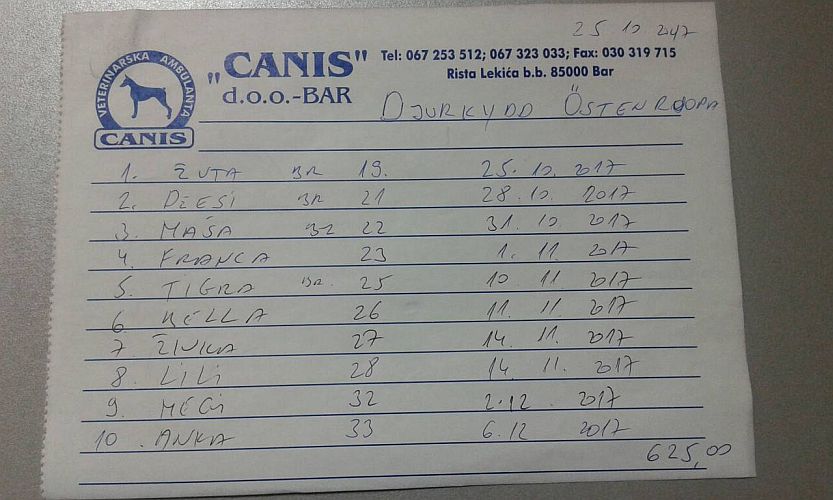 25 10 2017
VETERINARSKA AMBULANTA
CANIS
"CANIS"
d.o.o.-BAR
Tel: 067 253 512; 067 323 033; Fax: 030 319 715
Rista Lekića b.b. 85000 Bar
DJURKYDD ÖSTENROOPA
1. ŽUTA BR 19. 25. 10. 2017
2. DEESI BR 21 28. 10. 2017
3. MAŠA BR 22 31. 10 2017
4. FRANCA 23 1. 11. 2017
5. TIGRA BR. 25 10 11 2017
6 BELLA 26 11. 11. 2017
7 ŽIVKA 27 14. 11. 2017
8. LILI 28 14. 11. 2017
9. MEGI 32 2.12. 2017
10. ANKA 33 6.12 2017
625,00